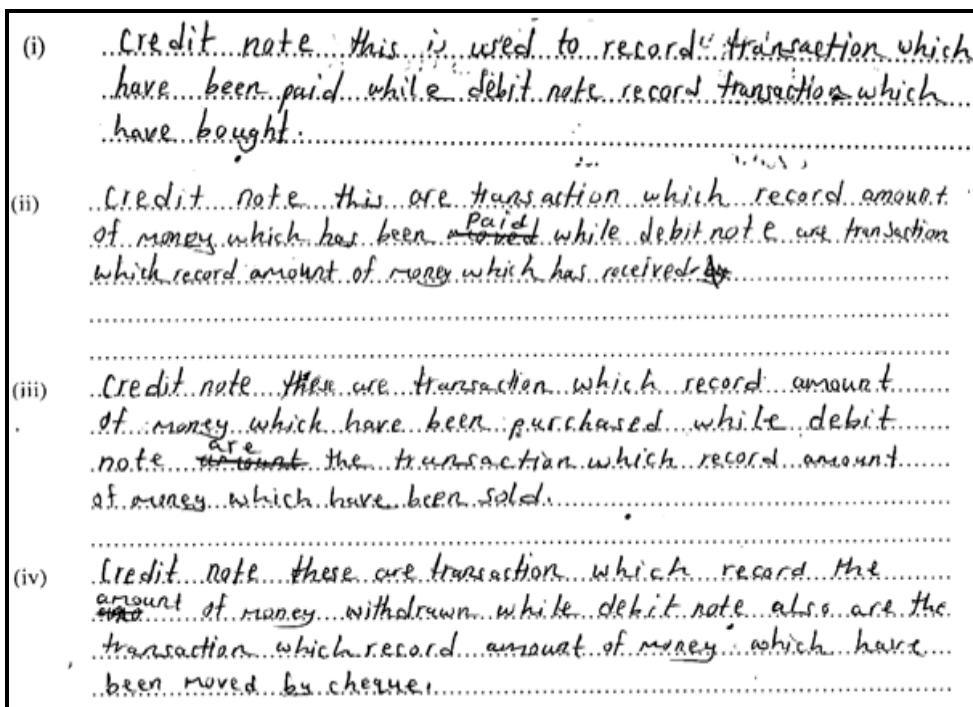 (i) Credit note this is used to record transaction which
have been paid while debit note record transaction which
have bought.
(ii) Credit note this are transaction which record amount
of money which has been moved paid while debit note are transaction
which record amount of money which has received by
(iii) Credit note these are transaction which record amount
of money which have been purchased while debit
note amount are the transaction which record amount
of money which have been sold.
(iv) Credit note these are transaction which record the
amount of money withdrawn while debit note also are the
transaction which record amount of money which have
been moved by cheque.